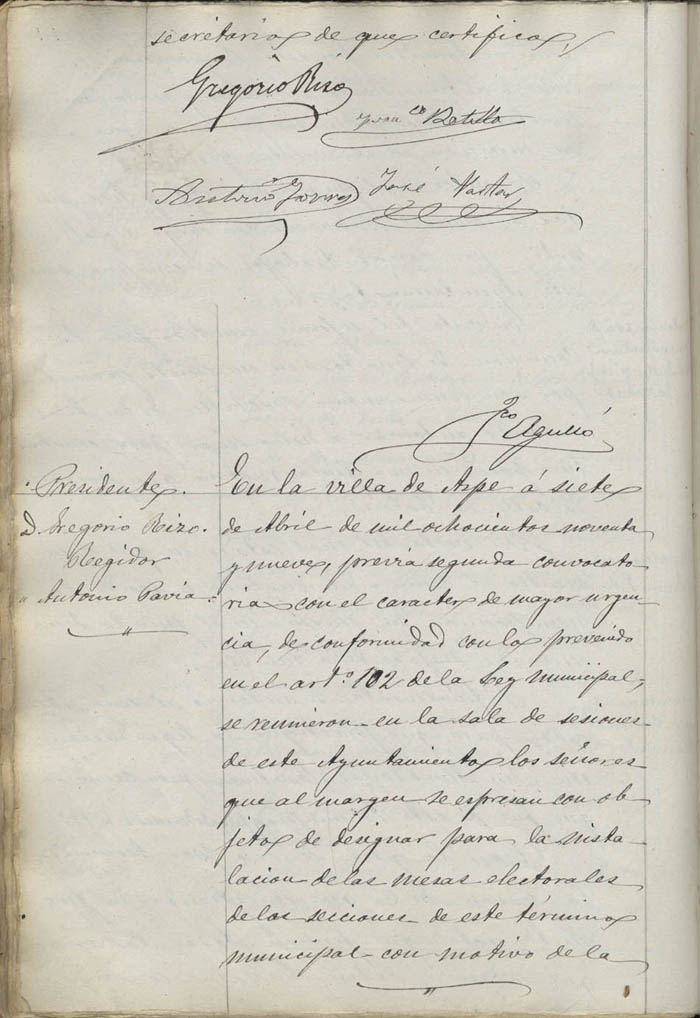 secretario de que certifico,
Gregorio Rizo
Franco Botella
Antonio
José
Fco Agulló
Presidente.
D. Gregorio Rizo.
Regidor
" Antonio Pavia.
"
En la villa de Aspe á siete
de Abril de mil ochocientos noventa
y nueve, previa segunda convocato-
ria con el caracter de mayor urgen-
cia, de conformidad con lo prevenido
en el artº. 102 de la Ley Municipal,
se reunieron en la sala de sesiones
de este Ayuntamiento los señores
que al margen se espresan con ob-
jeto de designar para la insta-
lacion de las mesas electorales
de las seciones de este término
municipal con motivo de la
"